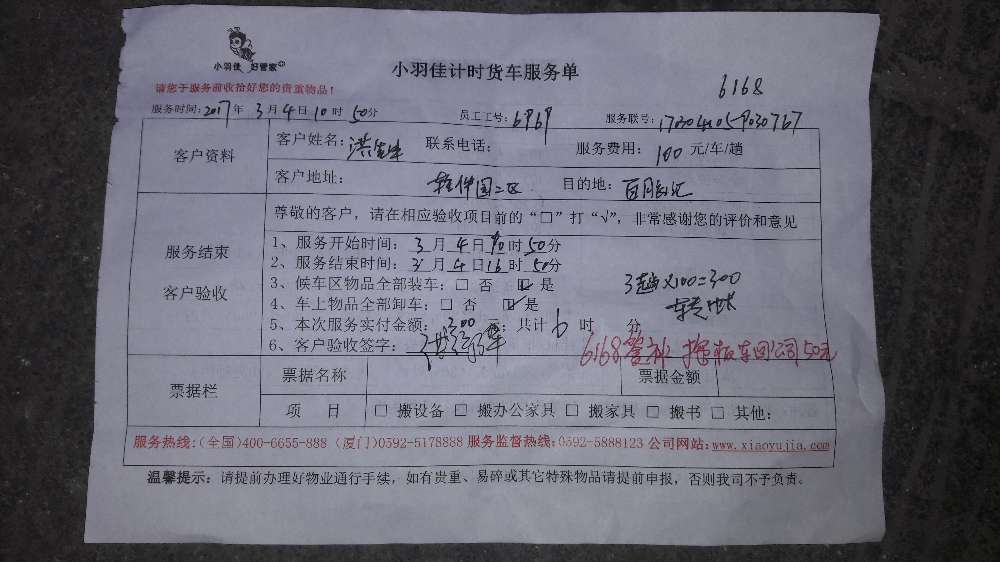 小羽佳 好管家
小羽佳计时货车服务单
6168
请您于服务前收拾好您的贵重物品！
服务时间：2017年 3月4日10时50分 员工工号：6969 服务联号：
客户资料 客户姓名：洪先生 联系电话： 服务费用：100元/车/趟
客户地址：软件园二区 目的地：
尊敬的客户，请在相应验收项目前的“□”打“√”，非常感谢您的评价和意见
服务结束
客户验收
1、服务开始时间：3月4日10时50分
2、服务结束时间：3月4日16时50分
3、候车区物品全部装车：□ 否 ☑ 是
3趟×100=300
4、车上物品全部卸车：□ 否 ☑ 是
5、本次服务实付金额：300元；共计6时 分
6、客户验收签字：
6168 车回公司50元
票据栏 票据名称 票据金额
项 目 □ 搬设备 □ 搬办公家具 □ 搬家具 □ 搬书 □ 其他：
服务热线：(全国)400-6655-888 (厦门)0592-5178888 服务监督热线：0592-5888123 公司网站：www.xiaoyujia.com
温馨提示：请提前办理好物业通行手续，如有贵重、易碎或其它特殊物品请提前申报，否则我司不予负责。